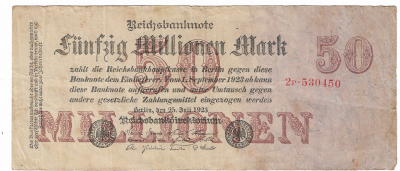 Reichsbanknote
Fünfzig Millionen Mark
50
zahlt die Reichsbankhauptkasse in Berlin gegen diese
Banknote dem Einlieferer. Vom 1. September 1923 ab kann
diese Banknote aufgerufen und unter Umtausch gegen
andere gesetzliche Zahlungsmittel eingezogen werden
Berlin, den 25. Juli 1923
Reichsbankdirektorium
50
2P·530450
MILLIONEN